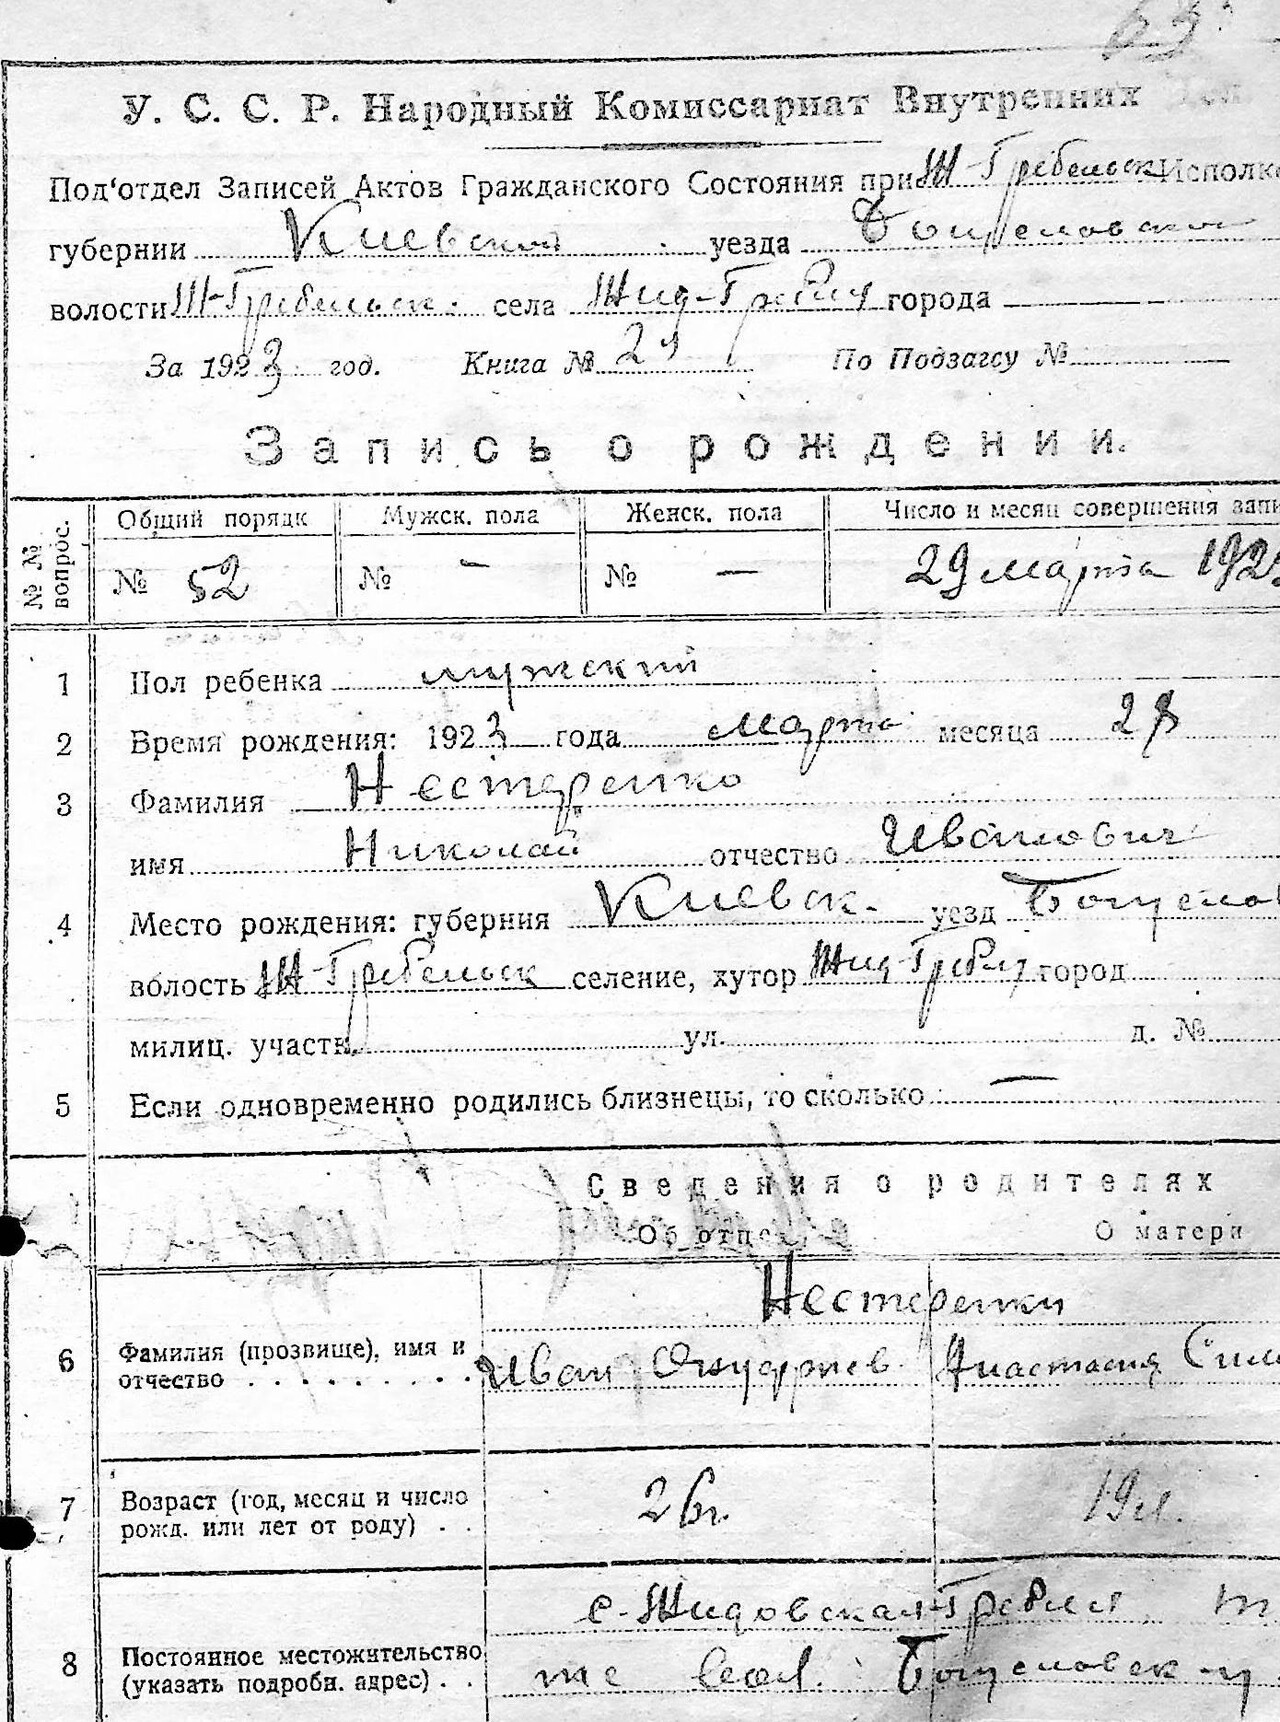 63
У. С. С. Р. Народный Комиссариат Внутренних Дел
Под'отдел Записей Актов Гражданского Состояния при Ж-Гребельск Исполк
губернии Киевской уезда Богуславского
волости Ж-Гребельск. села Жид-Гребля города —
За 1923 год. Книга № По Подзагсу № —
Запись о рождении.
№ № вопрос.
Общий порядк Мужск. пола Женск. пола Число и месяц совершения запи
№ 52 № — № — 29 марта 192
1 Пол ребенка мужский
2 Время рождения: 1923 года марта месяца 28
3 Фамилия Нестеренко
имя Николай отчество Иванович
4 Место рождения: губерния Киевск. уезд Богуслав
волость Ж-Гребельск селение, хутор Жид-Гребля город
милиц. участк. ул. д. №
5 Если одновременно родились близнецы, то сколько —
Сведения о родителях
Об отце О матери
Нестеренки
6 Фамилия (прозвище), имя и
отчество . . . . . . . . Иван Анастасия
7 Возраст (год, месяц и число
рожд. или лет от роду) . . 26 г. 19 л.
с. Жидовская-Гребля
8 Постоянное местожительство
(указать подробн. адрес) . . же вол. Богуславск у